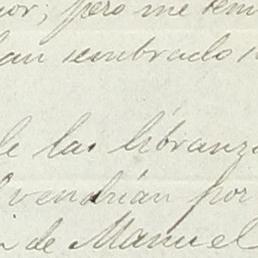 pero me
han sembrado
de las libranz
vendrían por
de Manuel